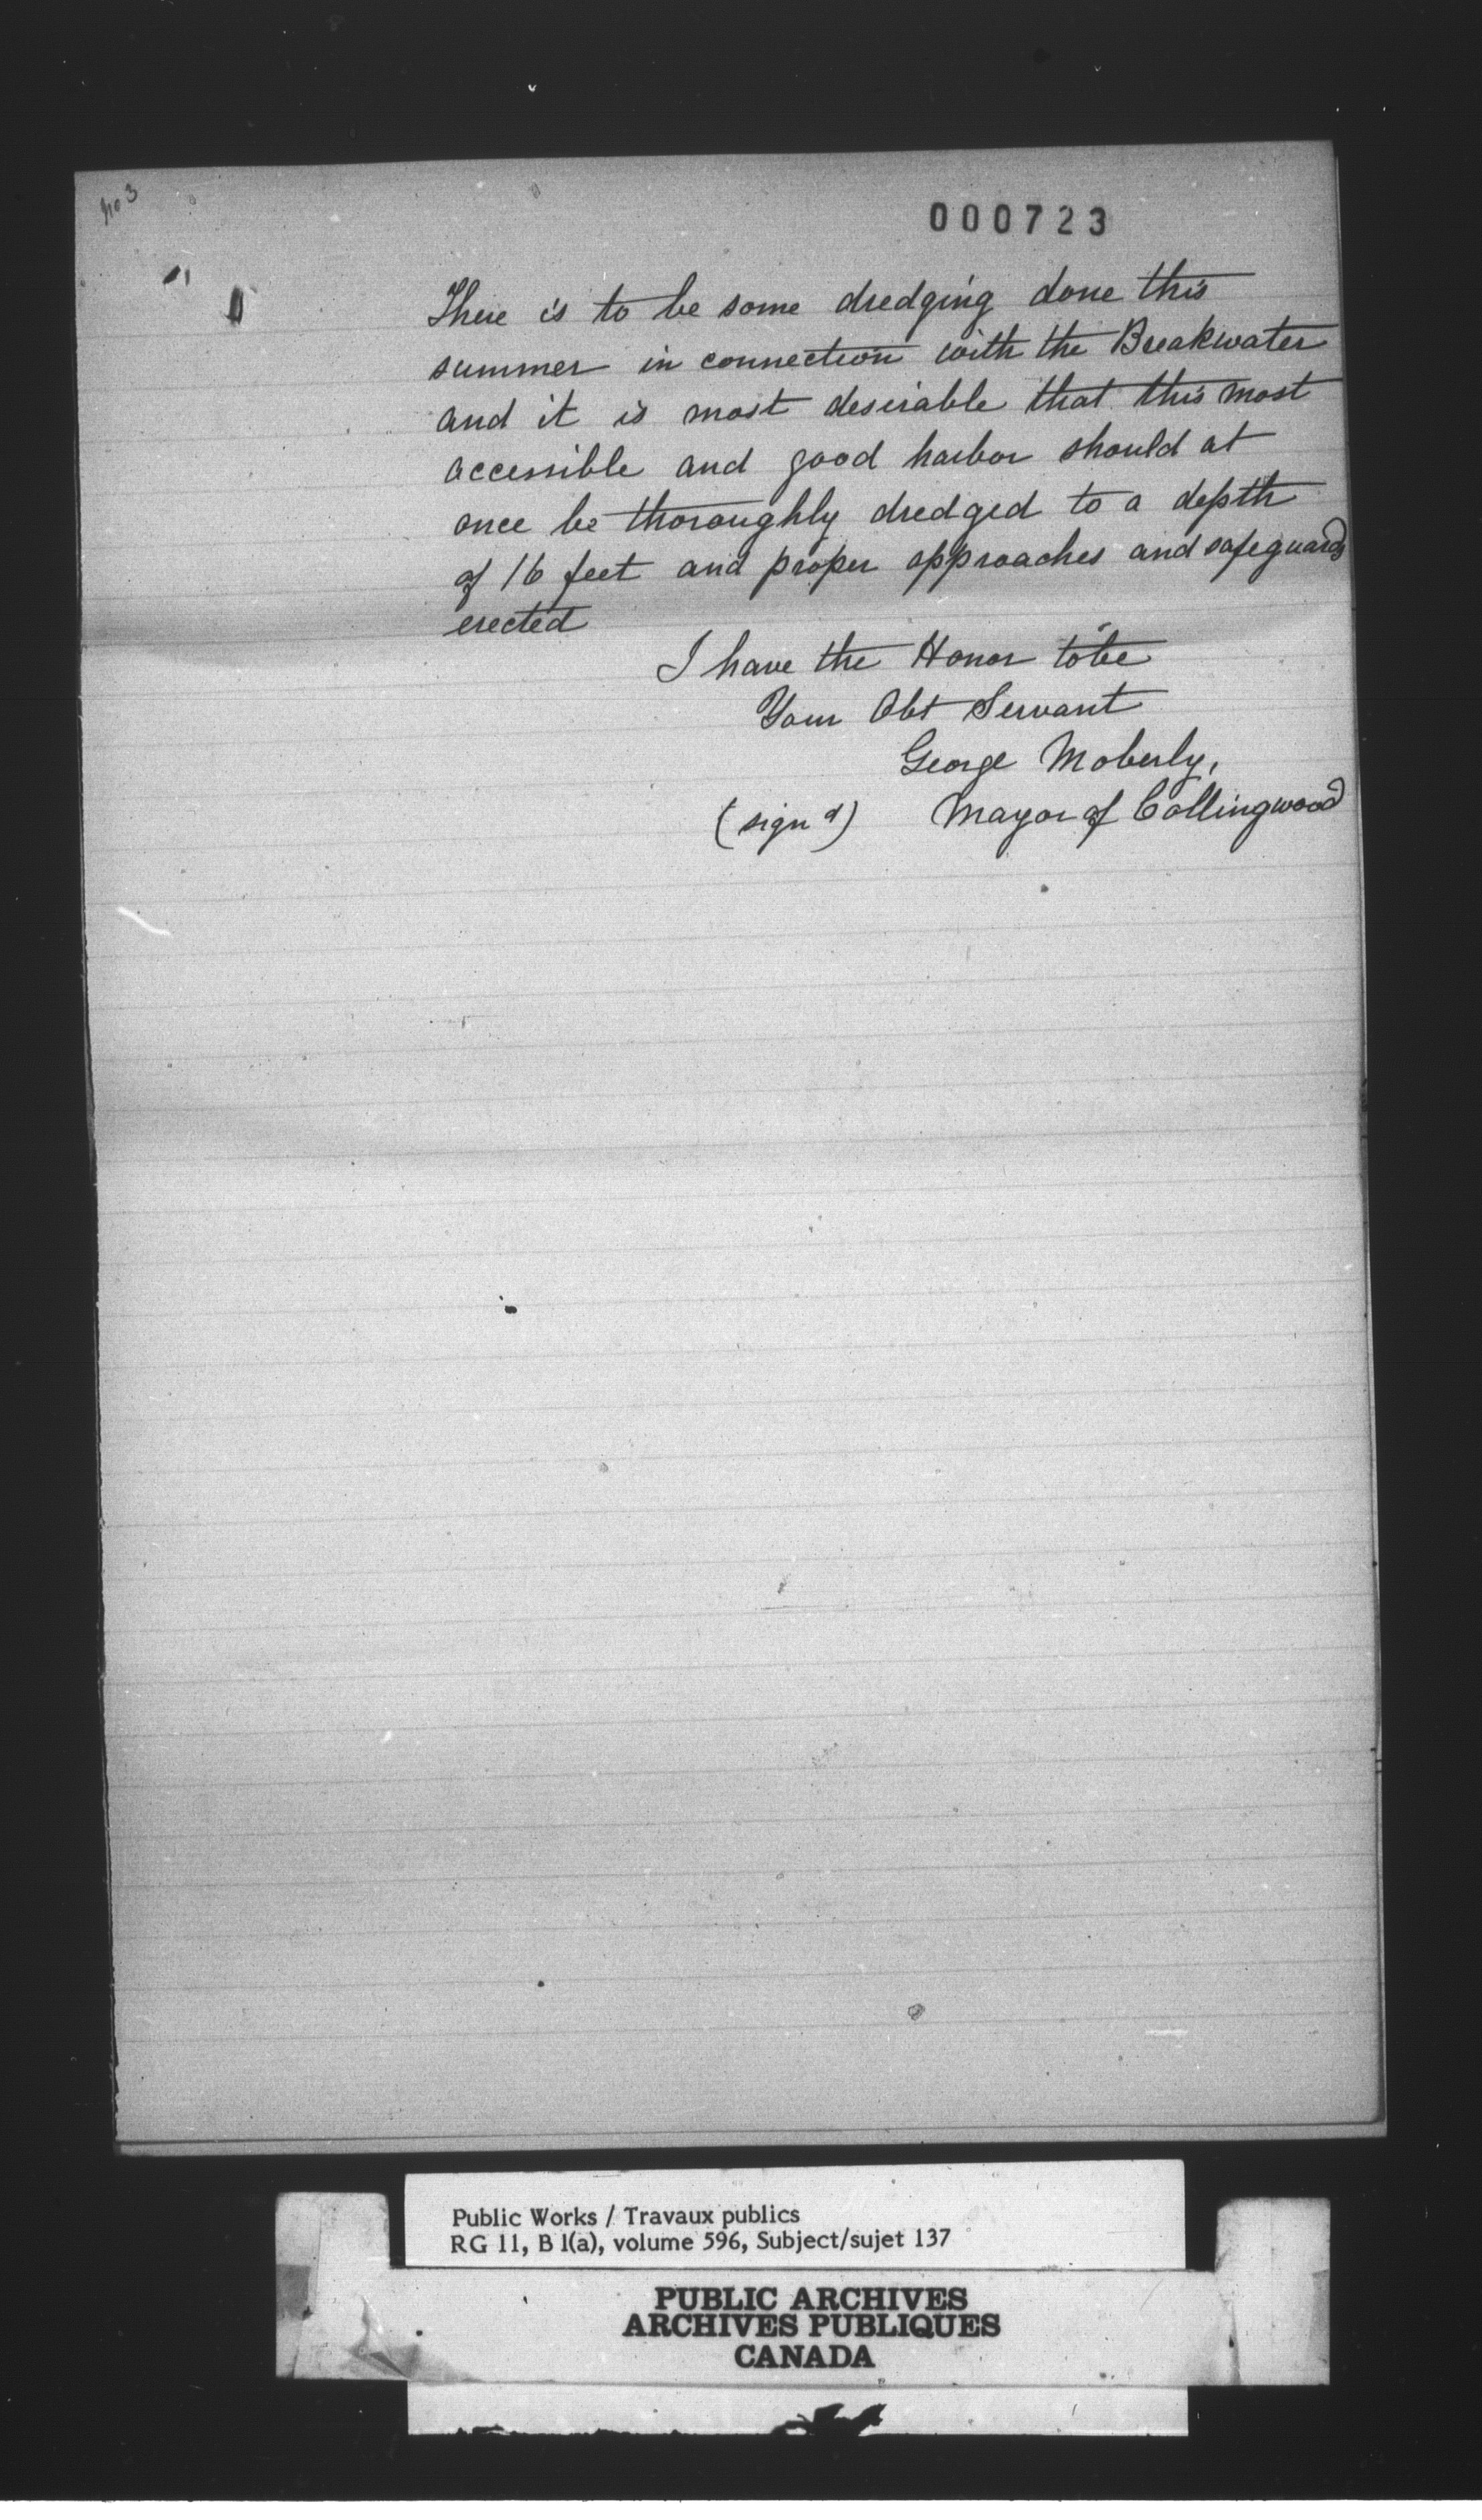 No 3
000723
There is to be some dredging done this
summer in connection with the Breakwater
and it is most desirable that this most
accessible and good harbor should at
once be thoroughly dredged to a depth
of 16 feet and proper approaches and safeguards
erected
I have the Honor to be
Your Obt Servant
George Moberly,
(sign d) Mayor of Collingwood
Public Works / Travaux publics
RG 11, B 1(a), volume 596, Subject/sujet 137
PUBLIC ARCHIVES
ARCHIVES PUBLIQUES
CANADA